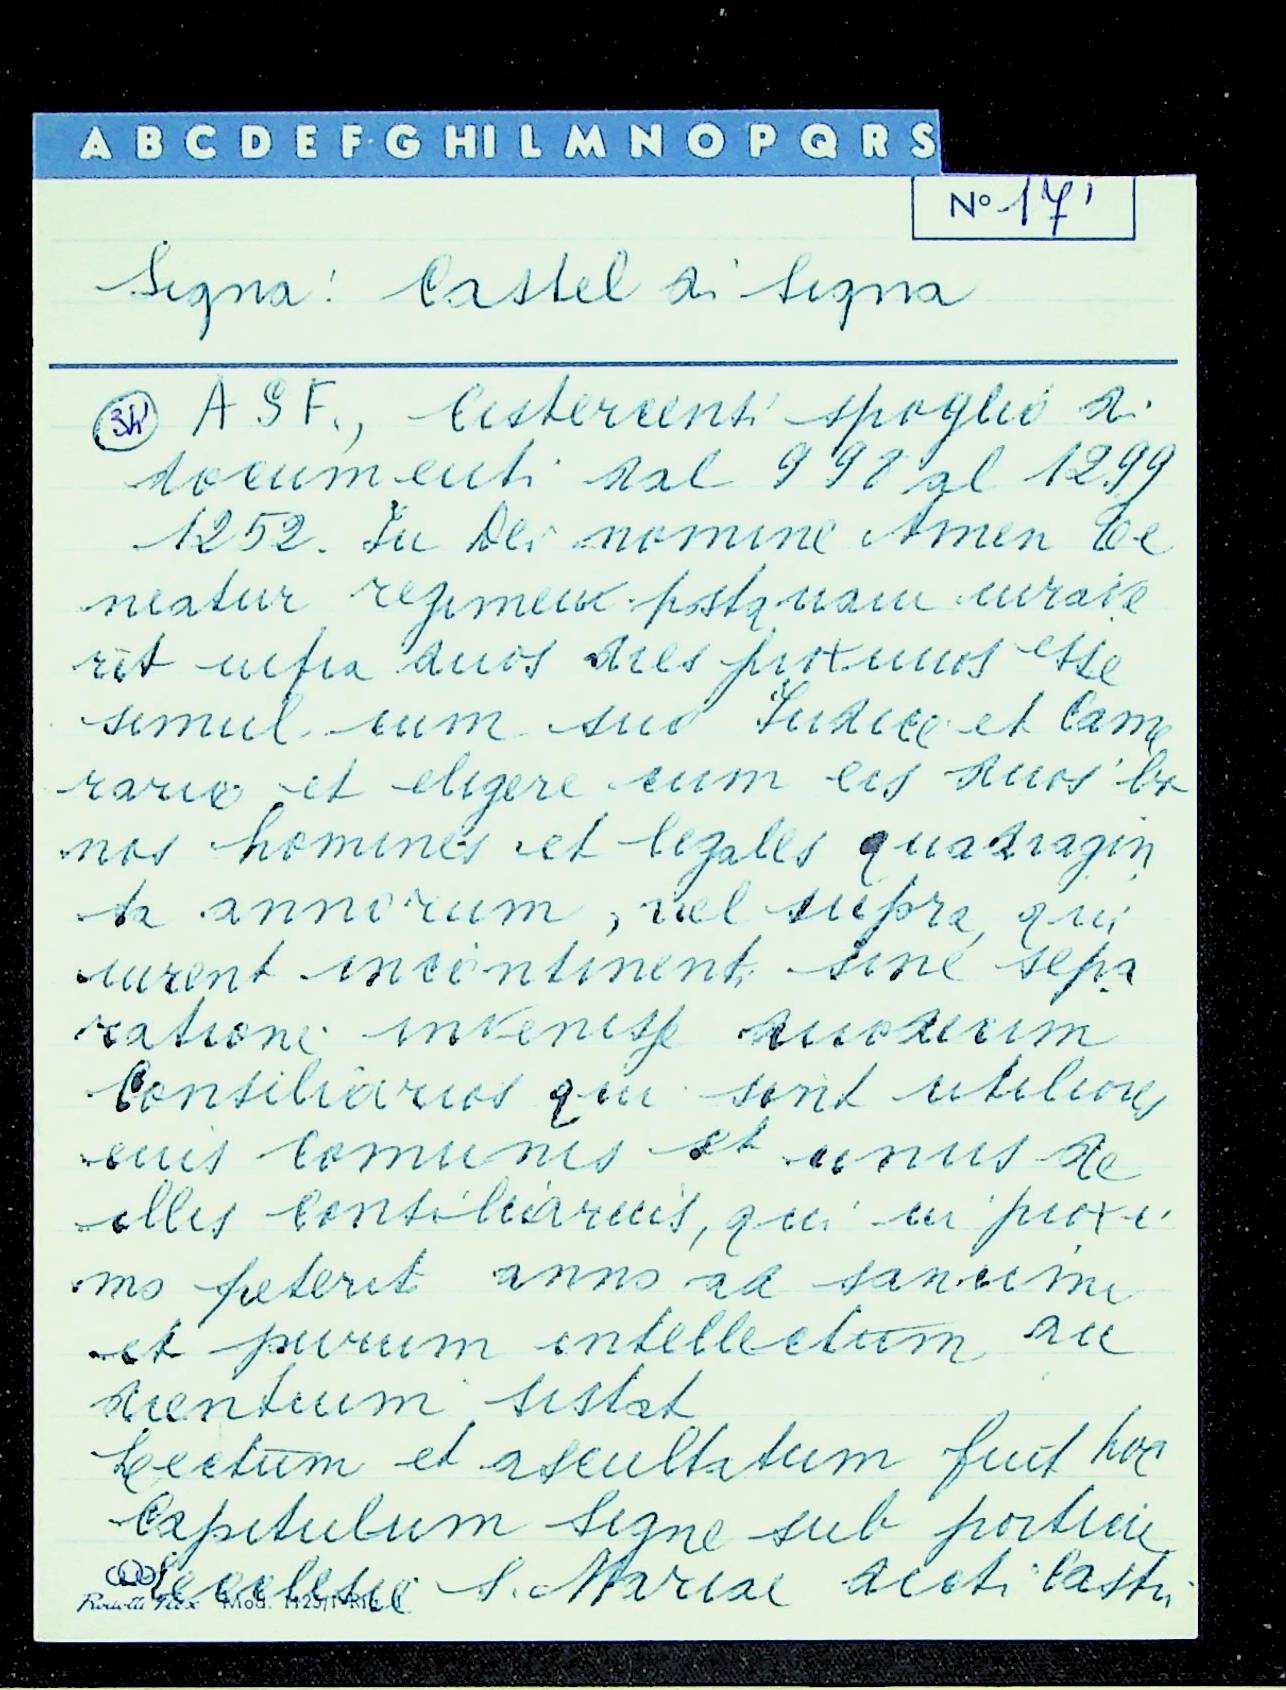 A B C D E F G H I L M N O P Q R S
N° 17'
Signa: Castel di Signa
34 A S F., Cistercensi spoglio di
documenti dal 998 al 1299
1252. In Dei nomine Amen Te
neatur regimen postquam iurave
rit infra duos dies proximos esse
simul cum suo Iudice et Came
rario et eligere cum eis duos bo
nos homines et legales quadragin
ta annorum, vel supra, qui
iurent incontinenti sine sepa
ratione invenisse duodecim
Consiliarios qui sint utiliores
comunis et unus de
illis Consiliariis, qui in proxi
mo peterit anno ad
et purum intellectum au
dientium sistat
Lectum et ascultatum fuit hoc
Capitulum Signe sub porticu
Ecclesie S. Mariae dicti Castri